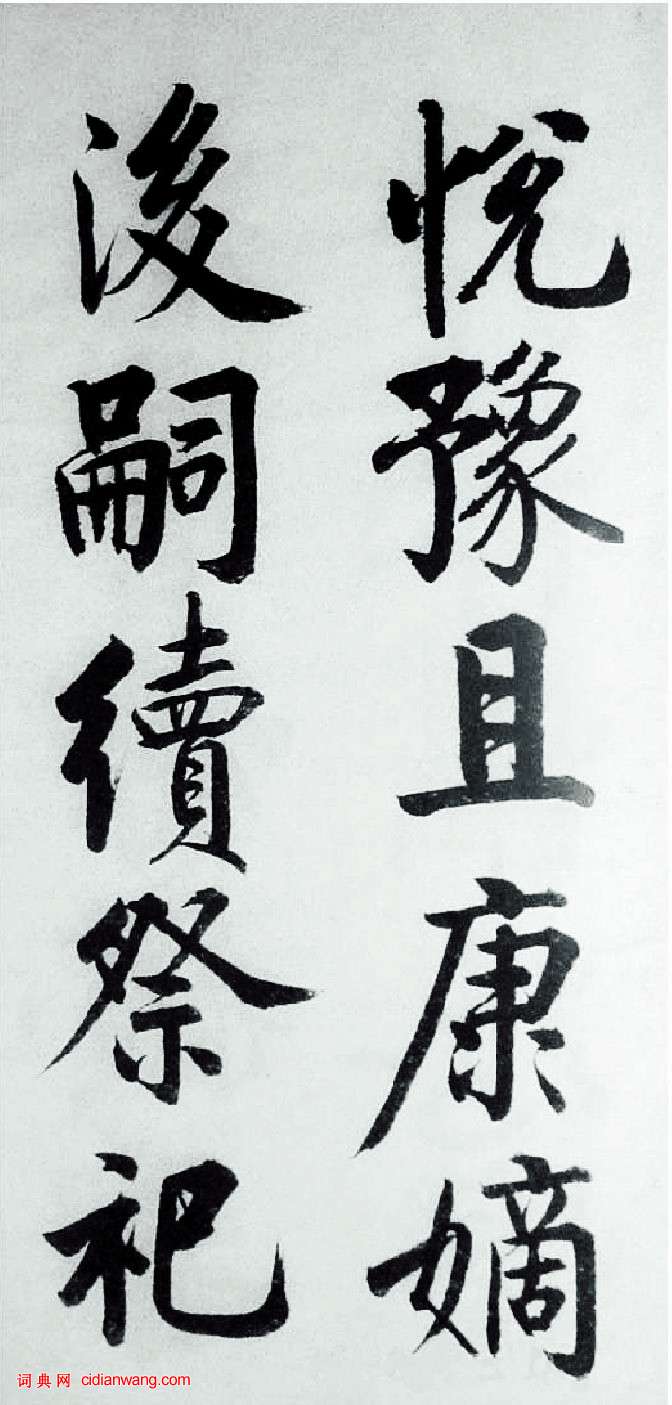 悅豫且康嫡
後嗣續祭祀
词典网 cidianwang.com